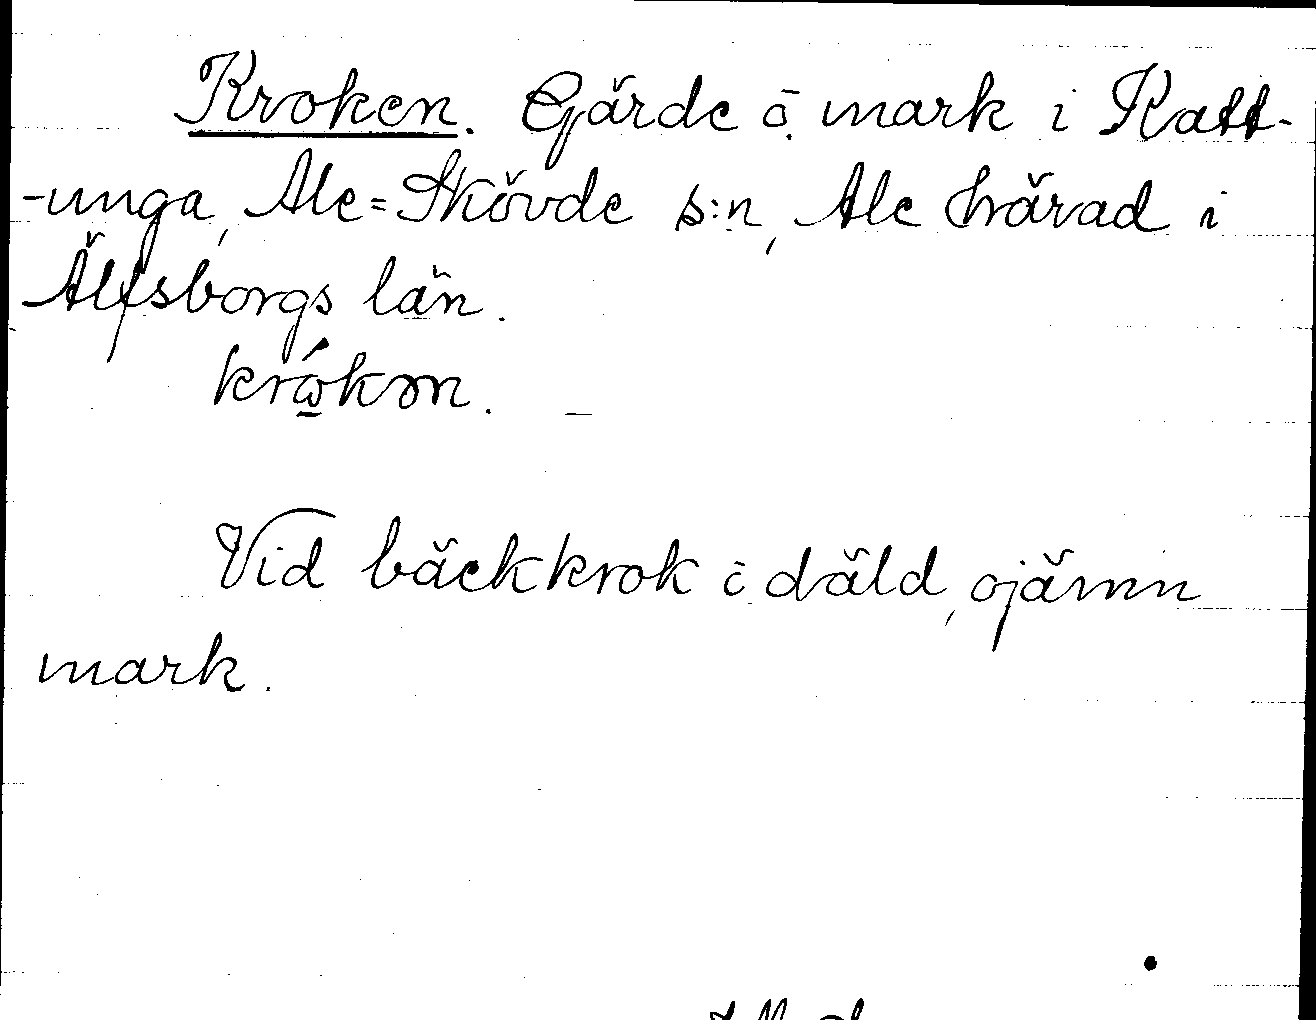 Kroken. Gärde o. mark i Katt-
-unga, Ale=Skövde s:n, Ale härad i
Älfsborgs län.
krώ̲kən.
Vid bäckkrok i däld, ojämn
mark.